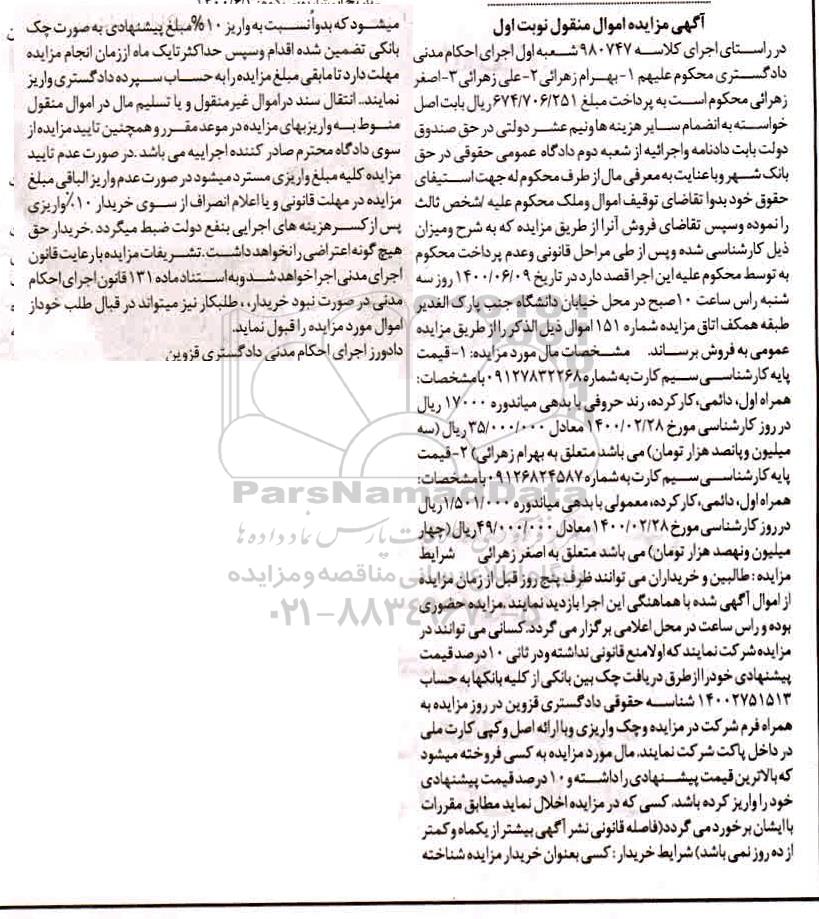 آگهی مزایده اموال منقول نوبت اول
در راستای اجرای کلاسه ۹۸۰۷۴۷ شعبه اول اجرای احکام مدنی
دادگستری محکوم علیهم ۱-بهرام زهرائی۲-علی زهرائی۳-اصغر
زهرائی محکوم است به پرداخت مبلغ ۶۷۴/۷۰۶/۲۵۱ ریال بابت اصل
خواسته به انضمام سایر هزینه ها ونیم عشر دولتی در حق صندوق
دولت بابت دادنامه واجرائیه از شعبه دوم دادگاه عمومی حقوقی در حق
بانک شهر و باعنایت به معرفی مال از طرف محکوم له جهت استیفای
حقوق خود بدوا تقاضای توقیف اموال وملک محکوم علیه /شخص ثالث
را نموده وسپس تقاضای فروش آنرا از طریق مزایده که به شرح ومیزان
ذیل کارشناسی شده وپس از طی مراحل قانونی وعدم پرداخت محکوم
به توسط محکوم علیه این اجرا قصد دارد در تاریخ ۱۴۰۰/۰۶/۰۹ روز سه
شنبه راس ساعت ۱۰صبح در محل خیابان دانشگاه جنب پارک الغدیر
طبقه همکف اتاق مزایده شماره ۱۵۱ اموال ذیل الذکر را از طریق مزایده
عمومی به فروش برساند. مشخصات مال مورد مزایده: ۱-قیمت
پایه کارشناسی سیم کارت به شماره ۰۹۱۲۷۸۳۲۲۶۸ با مشخصات:
همراه اول، دائمی، کار کرده، رند حروفی با بدهی میاندوره ۱۷۰۰۰ ریال
در روز کارشناسی مورخ ۱۴۰۰/۰۲/۲۸ معادل ۳۵/۰۰۰/۰۰۰ ریال (سه
میلیون و پانصد هزار تومان) می باشد متعلق به بهرام زهرائی) ۲-قیمت
پایه کارشناسی سیم کارت به شماره ۰۹۱۲۶۸۲۴۵۸۷ با مشخصات:
همراه اول، دائمی، کار کرده، معمولی با بدهی میاندوره ۱/۵۰۱/۰۰۰ ریال
در روز کارشناسی مورخ ۱۴۰۰/۰۲/۲۸ معادل ۴۹/۰۰۰/۰۰۰ریال (چهار
میلیون ونهصد هزار تومان) می باشد متعلق به اصغر زهرائی شرایط
مزایده : طالبین و خریداران می توانند ظرف پنج روز قبل از زمان مزایده
از اموال آگهی شده با هماهنگی این اجرا بازدید نمایند .مزایده حضوری
بوده و راس ساعت در محل اعلامی برگزار می گردد.کسانی می توانند در
مزایده شرکت نمایند که اولا منع قانونی نداشته ودر ثانی ۱۰ درصد قیمت
پیشنهادی خود را از طرق دریافت چک بین بانکی از کلیه بانکها به حساب
۱۴۰۰۲۷۵۱۵۱۳ شناسه حقوقی دادگستری قزوین در روز مزایده به
همراه فرم شرکت در مزایده وچک واریزی وبا ارائه اصل و کپی کارت ملی
در داخل پاکت شرکت نمایند. مال مورد مزایده به کسی فروخته میشود
که بالاترین قیمت پیشنهادی را داشته و ۱۰ درصد قیمت پیشنهادی
خود را واریز کرده باشد. کسی که در مزایده اخلال نماید مطابق مقررات
با ایشان برخورد می گردد(فاصله قانونی نشر آگهی بیشتر از یکماه و کمتر
از ده روز نمی باشد) شرایط خریدار : کسی بعنوان خریدار مزایده شناخته
میشود که بدواً نسبت به واریز ۱۰%مبلغ پیشنهادی به صورت چک
بانکی تضمین شده اقدام وسپس حداکثر تایک ماه از زمان انجام مزایده
مهلت دارد تا مابقی مبلغ مزایده را به حساب سپرده دادگستری واریز
نمایند.. انتقال سند در اموال غیر منقول و یا تسلیم مال در اموال منقول
منوط به واریز بهای مزایده در موعد مقرر و همچنین تایید مزایده از
سوی دادگاه محترم صادر کننده اجراییه می باشد .در صورت عدم تایید
مزایده کلیه مبلغ واریزی مسترد میشود در صورت عدم واریز الباقی مبلغ
مزایده در مهلت قانونی و یا اعلام انصراف از سوی خریدار ۱۰٪واریزی
پس از کسر هزینه های اجرایی بنفع دولت ضبط میگردد .خریدار حق
هیچ گونه اعتراضی را نخواهد داشت.تشریفات مزایده با رعایت قانون
اجرای مدنی اجرا خواهد شد و به استناد ماده ۱۳۱ قانون اجرای احکام
مدنی در صورت نبود خریدار، ، طلبکار نیز میتواند در قبال طلب خود از
اموال مورد مزایده را قبول نماید.
دادورز اجرای احکام مدنی دادگستری قزوین
ParsNamadData
پایگاه اطلاع رسانی مناقصه و مزایده
۰۲۱-۸۸۳۴۹۶۷۰-۵